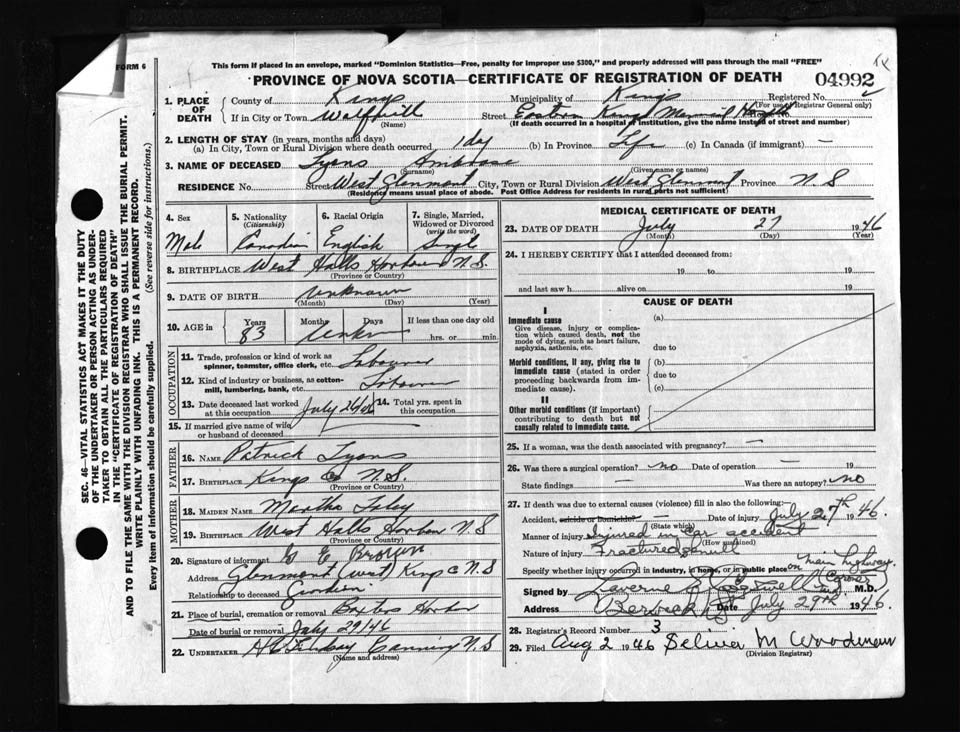 FORM 6
This form if placed in an envelope, marked "Dominion Statistics—Free, penalty for improper use $300," and properly addressed will pass through the mail "FREE"
PROVINCE OF NOVA SCOTIA—CERTIFICATE OF REGISTRATION OF DEATH
04992
SEC. 46—VITAL STATISTICS ACT MAKES IT THE DUTY
OF THE UNDERTAKER OR PERSON ACTING AS UNDER-
TAKER TO OBTAIN ALL THE PARTICULARS REQUIRED
IN THE "CERTIFICATE OF REGISTRATION OF DEATH"
AND TO FILE THE SAME WITH THE DIVISION REGISTRAR WHO SHALL ISSUE THE BURIAL PERMIT.
WRITE PLAINLY WITH UNFADING INK. THIS IS A PERMANENT RECORD.
Every item of information should be carefully supplied. (See reverse side for instructions.)
1. PLACE OF DEATH
County of Kings Municipality of Kings Registered No.
(For use of Registrar General only)
If in City or Town Wolfville Street Eastern Kings Memorial
(Name) (If death occurred in a hospital or institution, give the name instead of street and number)
2. LENGTH OF STAY (in years, months and days)
(a) In City, Town or Rural Division where death occurred 1 day (b) In Province Life (c) In Canada (if immigrant) —
3. NAME OF DECEASED Lyons Ambrose
(Surname) (Given name or names)
RESIDENCE No. Street West Glenmont City, Town or Rural Division West Glenmont Province N S
(Residence means usual place of abode. Post Office Address for residents in rural parts not sufficient)
4. Sex
Male
5. Nationality
(Citizenship)
Canadian
6. Racial Origin
English
7. Single, Married, Widowed or Divorced
(write the word)
Single
8. BIRTHPLACE West Halls Harbour N.S.
(Province or Country)
9. DATE OF BIRTH unknown
(Month) (Day) (Year)
10. AGE in Years Months Days If less than one day old
83 unkn hrs. or min.
OCCUPATION
11. Trade, profession or kind of work as
spinner, teamster, office clerk, etc. Labourer
12. Kind of industry or business, as cotton-
mill, lumbering, bank, etc. Labourer
13. Date deceased last worked
at this occupation July 26/46
14. Total yrs. spent in
this occupation
15. If married give name of wife
or husband of deceased —
FATHER
16. NAME Patrick Lyons
17. BIRTHPLACE Kings Co N.S.
(Province or Country)
MOTHER
18. MAIDEN NAME Martha
19. BIRTHPLACE West Halls Harbor N S
(Province or Country)
20. Signature of informant G E Brown
Address Glenmont (West) Kings C N.S
Relationship to deceased
21. Place of burial, cremation or removal Baxters Harbor
Date of burial or removal July 29/46
22. UNDERTAKER Lindsay Canning N.S
(Name and address)
MEDICAL CERTIFICATE OF DEATH
23. DATE OF DEATH July 27 1946
(Month) (Day) (Year)
24. I HEREBY CERTIFY that I attended deceased from:
19 to 19
and last saw h alive on 19
CAUSE OF DEATH
I
Immediate cause (a)
Give disease, injury or complica-
tion which caused death, not the
mode of dying, such as heart failure,
asphyxia, asthenia, etc.
due to
Morbid conditions, if any, giving rise to
immediate cause (stated in order
proceeding backwards from im-
mediate cause).
(b)
due to
(c)
II
Other morbid conditions (if important)
contributing to death but not
causally related to immediate cause.
25. If a woman, was the death associated with pregnancy? —
26. Was there a surgical operation? no Date of operation — 19
State findings — Was there an autopsy? no
27. If death was due to external causes (violence) fill in also the following:—
Accident, suicide or homicide? — Date of injury July 27th 1946.
(State which)
Manner of injury Injured in car accident
(How sustained)
Nature of injury Fractured skull
Specify whether injury occurred in industry, in home, or in public place on main highway.
Signed by Laverne (Coroner) M.D.
Address Berwick Date July 29th 1946.
28. Registrar's Record Number 3
29. Filed Aug 2 1946 M Woodman
(Division Registrar)